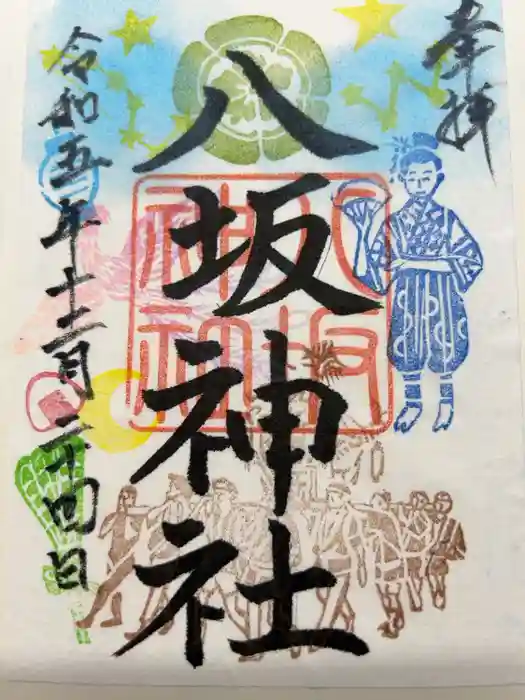 奉拝
八坂神社
八坂神社
令和五年十二月二十四日